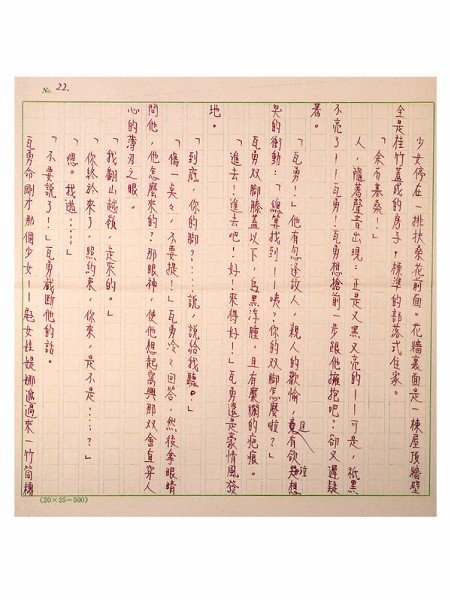 No. 22.
少女停在一排扶桑花前面。花牆裏面是一棟屋頂牆壁
全是桂竹蓋成的房子？標準的部落式住家。
「余石基桑！」
人，隨著聲音出現：正是又黑又亮的——可是，祇黑
不亮了——瓦勇！瓦勇想搶前一步跟他擁抱吧？卻又遲疑
著。
「瓦勇！」他有忽逢故人，親人的歡愉，且有欲
哭的衝動：「總算找到——咦？你的双脚怎麼啦？」
瓦勇双脚膝蓋以下，烏黑浮腫，且有糜爛的疤痕。
「進去！進去吧！好！來得好！」瓦勇還是豪情風發
地。
「到底，你的脚？……說，說給我聽。」
「傷一臭々，不要提！」瓦勇冷々回答，然後拿眼睛
問他，他怎麼來的？那眼神，使他想起寓興那双會直穿人
心的薄刃之眼。
「我翻山越嶺，走來的。」
「你終於來了，照約東，你來，是不是？……？」
「嗯。我逃……」
「不要說了！」瓦勇截斷他的話。
瓦勇命剛才那個少女——尅女娃媞娜滬過來一竹筒糟
(20×25=500)